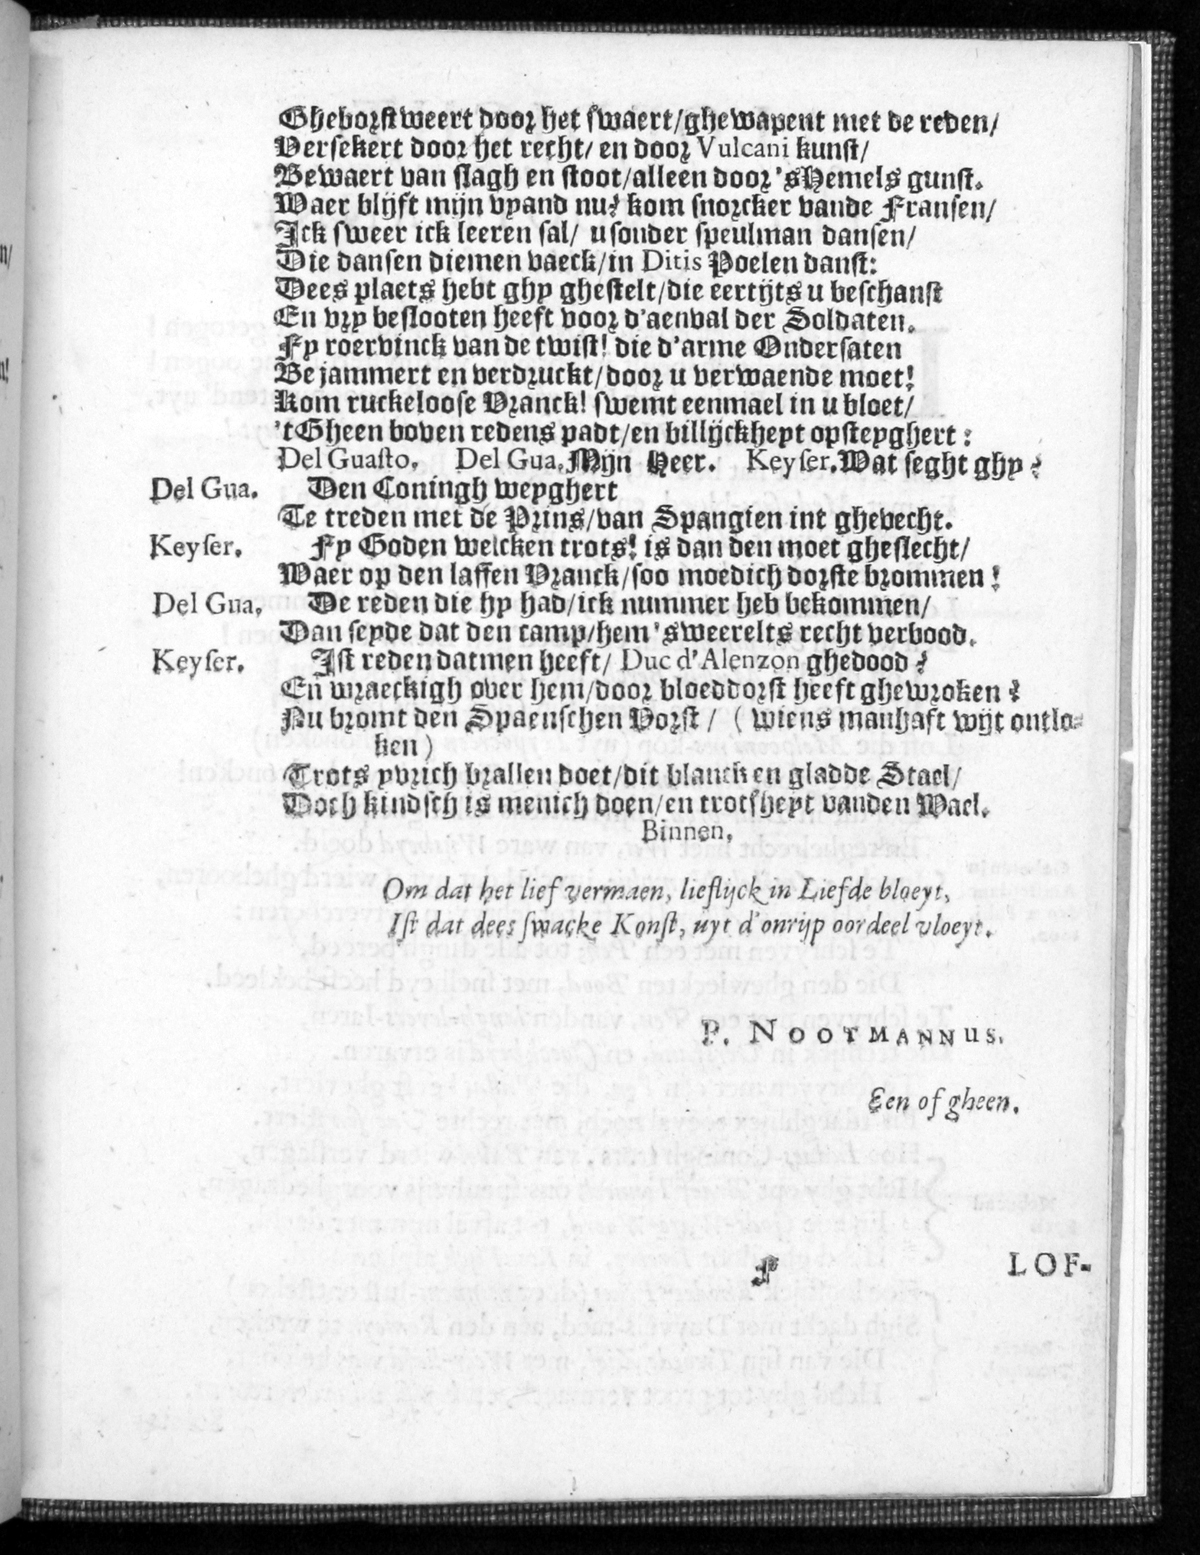 Gheborstweert door het swaert/ghewapent met de reden/
Versekert door het recht/ en door Vulcani kunst/
Bewaert van slagh en stoot/alleen door 'sHemels gunst.
Waer blijft mijn vyand nu? kom snorcker vande Fransen/
Ick sweer ick leeren sal/ u sonder speulman dansen/
Die dansen diemen vaeck/in Ditis Poelen danst:
Dees plaets hebt ghy ghestelt/die eertijts u beschanst
En vry beslooten heeft voor d'aenval der Soldaten.
Fy roervinck van de twist! die d'arme Ondersaten
Bejammert en verdruckt/door u verwaende moet!
Kom ruckeloose Vranck! swemt eenmael in u bloet/
'tGheen boven redens padt/en billijckheyt opsteyghert:
Del Guasto. Del Gua. Mijn Heer. Keyser. Wat seght ghy?
Del Gua. Den Coningh weyghert
Te treden met de Prins/van Spangien int ghevecht.
Keyser. Fy Goden welcken trots! is dan den moet gheslecht/
Waer op den laffen Vranck/soo moedich dorste brommen!
Del Gua. De reden die hy had/ick nummer heb bekommen/
Dan seyde dat den camp/hem 'sweerelts recht verbood.
Keyser. Ist reden datmen heeft/ Duc d'Alenzon ghedood?
En wraeckigh over hem/door bloeddorst heeft ghewroken?
Nu bromt den Spaenschen Vorst/ (wiens manhaft wijt ontlo-
ken)
Trots yvrich brallen doet/dit blanck en gladde Stael/
Doch kindsch is menich doen/en trotsheyt vanden Wael.
Binnen.
Om dat het lief vermaen, lieflijck in Liefde bloeyt,
Ist dat dees swacke Konst, uyt d'onrijp oordeel vloeyt.
P. NOOTMANNUS.
Een of gheen.
F LOF-